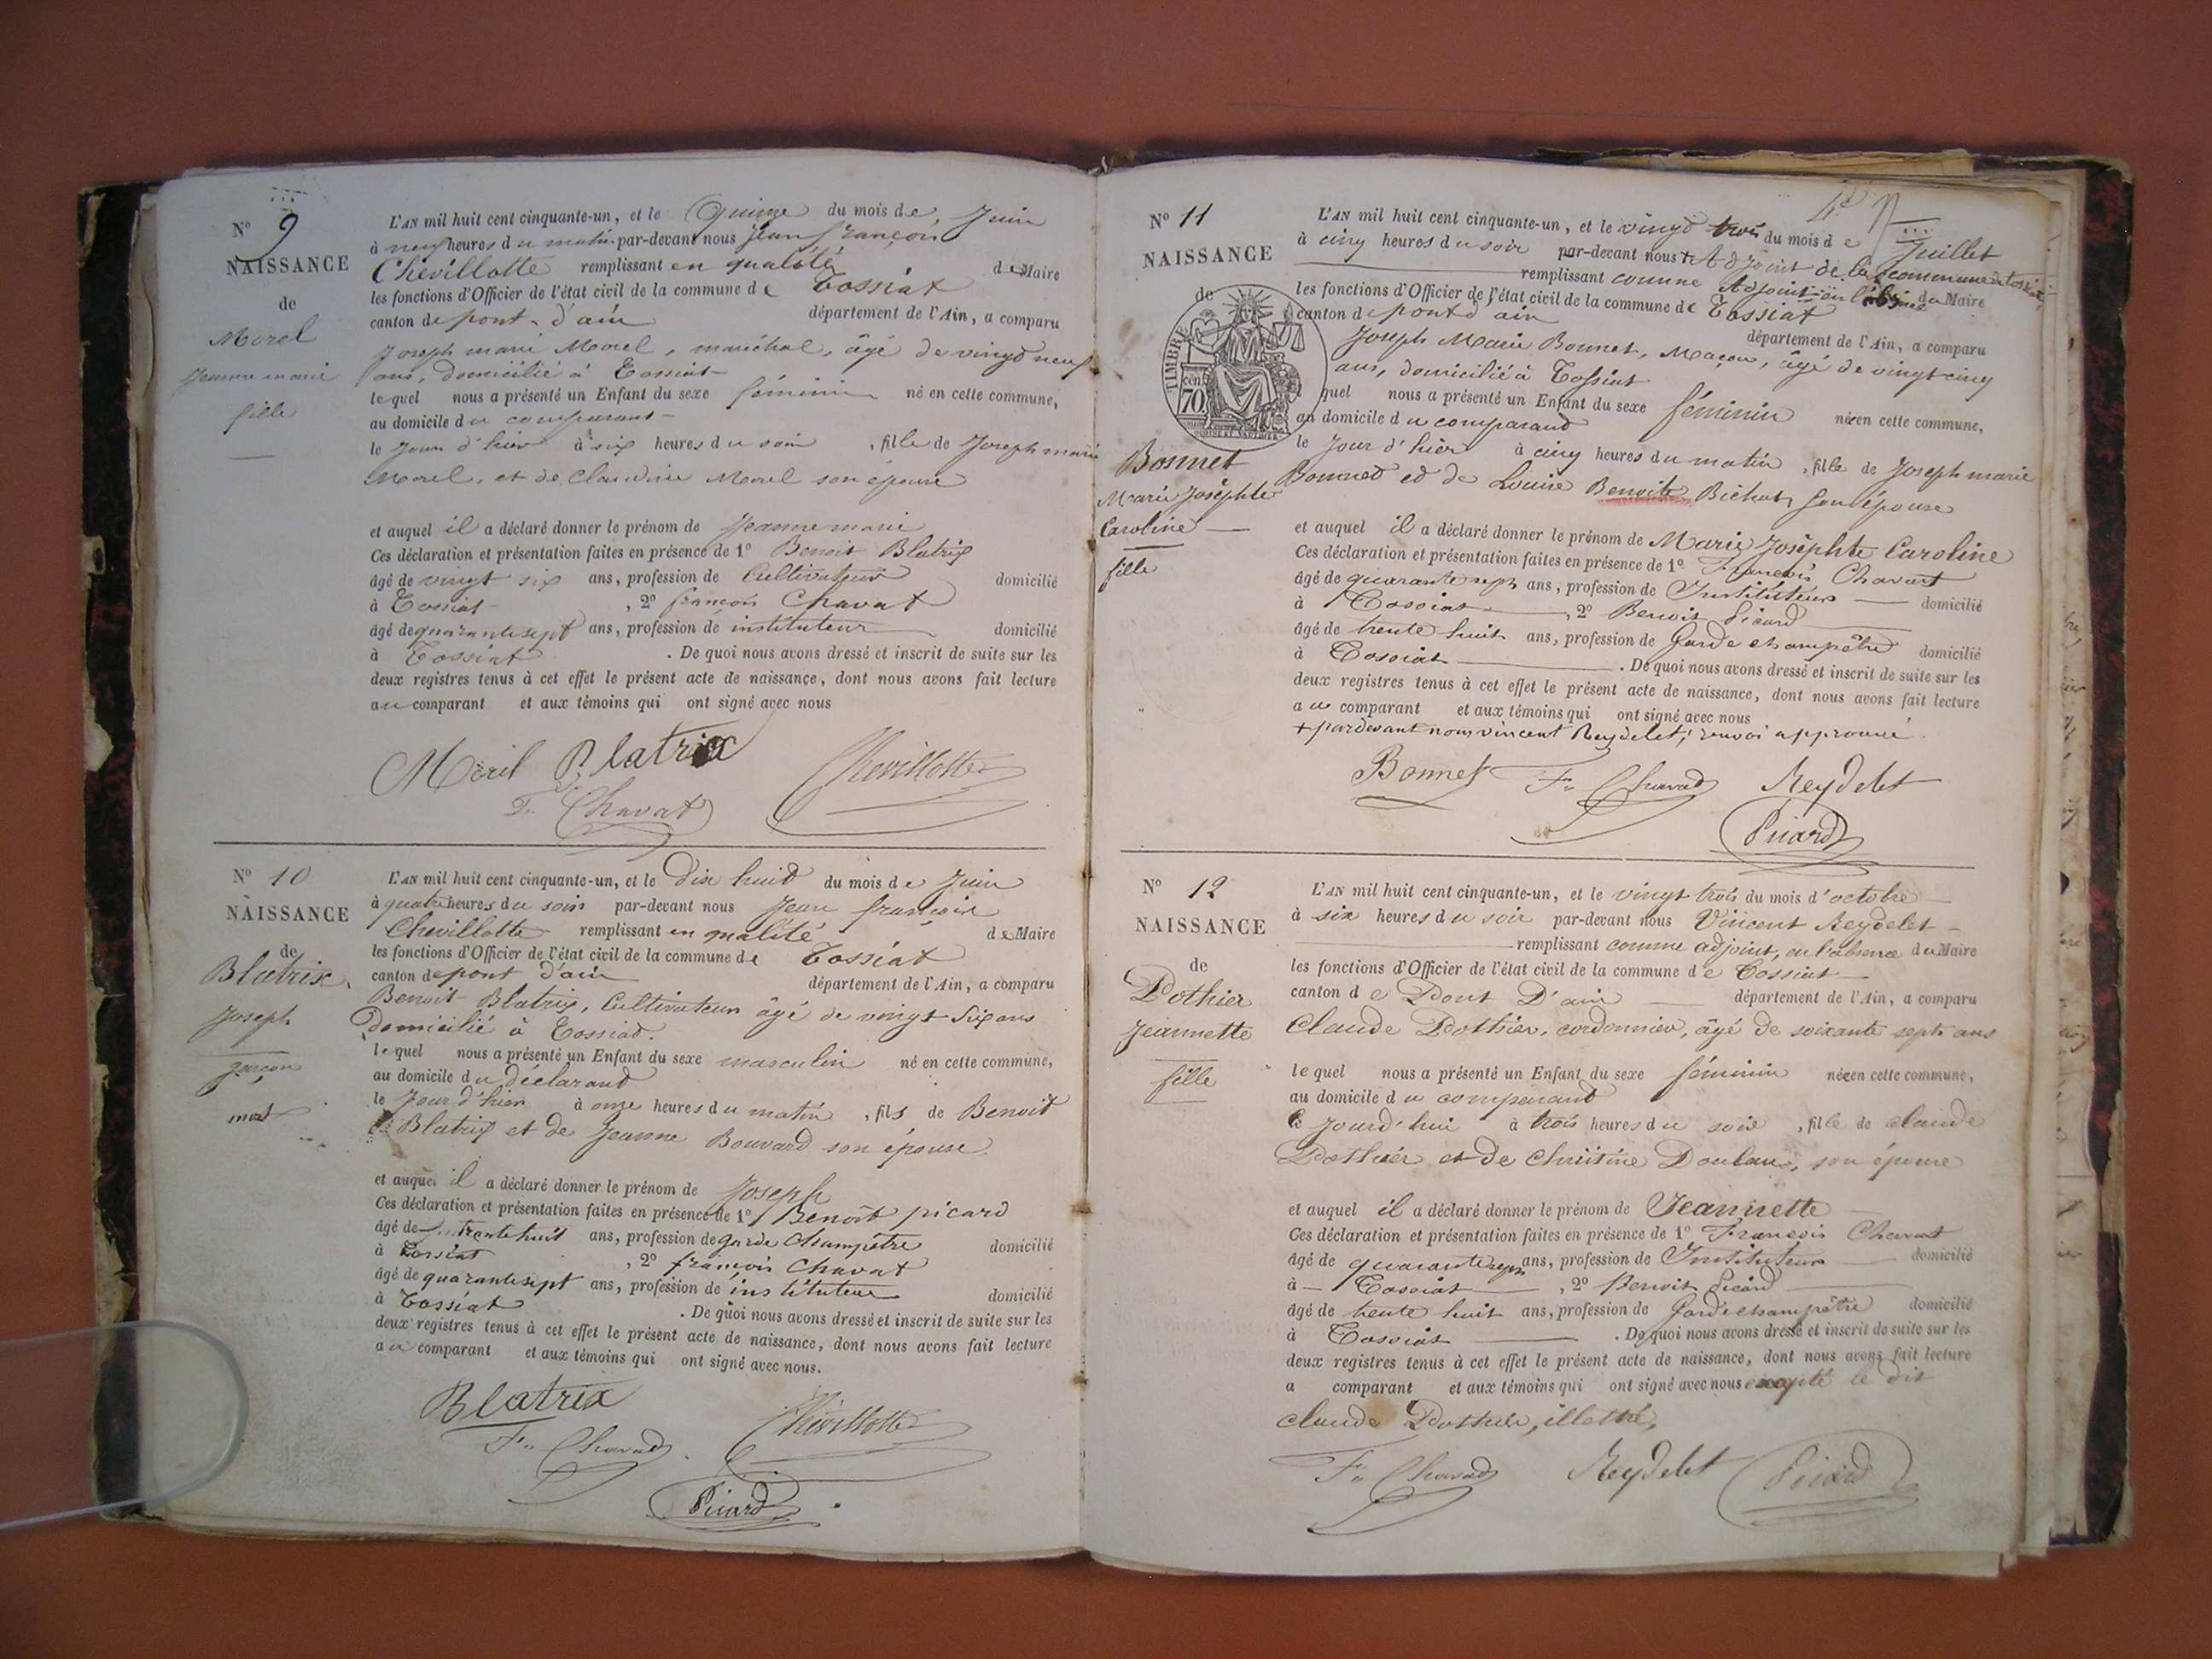 N° 9
NAISSANCE
de
Morel
Jeanne marie
fille
L'AN mil huit cent cinquante-un, et le Quinze du mois de, Juin
à neuf heures du matin par-devant nous Jean françois
Chevillotte remplissant en qualité de Maire
les fonctions d'Officier de l'état civil de la commune de Tossiat
canton de pont d'ain département de l'Ain, a comparu
Joseph marie Morel, maréchal, âgé de vingt neuf
ans, domicilié à Tossiat
lequel nous a présenté un Enfant du sexe féminin né en cette commune,
au domicile du comparant
le Jour d'hier à six heures du soir, fille de Joseph marie
Morel, et de Claudine Morel son épouse
et auquel il a déclaré donner le prénom de Jeanne marie
Ces déclaration et présentation faites en présence de 1° Benoit Blatrix
âgé de vingt six ans, profession de Cultivateur domicilié
à Tossiat, 2° françois Chavat
âgé de quarante sept ans, profession de instituteur domicilié
à Tossiat. De quoi nous avons dressé et inscrit de suite sur les
deux registres tenus à cet effet le présent acte de naissance, dont nous avons fait lecture
au comparant et aux témoins qui ont signé avec nous
Morel Blatrix Chevillotte
F. Chavat
N° 10
NAISSANCE
de
Blatrix
Joseph
garçon
mort
L'AN mil huit cent cinquante-un, et le Dix huit du mois de Juin
à quatre heures du soir par-devant nous Jean françois
Chevillotte remplissant en qualité de Maire
les fonctions d'Officier de l'état civil de la commune de Tossiat
canton de pont d'ain département de l'Ain, a comparu
Benoit Blatrix, Cultivateur âgé de vingt six ans
Domicilié à Tossiat.
lequel nous a présenté un Enfant du sexe masculin né en cette commune,
au domicile du déclarant
le Jour d'hier à onze heures du matin, fils de Benoit
Blatrix et de Jeanne Bouvard son épouse.
et auquel il a déclaré donner le prénom de Joseph
Ces déclaration et présentation faites en présence de 1° Benoit picard
âgé de trente huit ans, profession de garde Champêtre domicilié
à Tossiat, 2° françois Chavat
âgé de quarante sept ans, profession de instituteur domicilié
à Tossiat. De quoi nous avons dressé et inscrit de suite sur les
deux registres tenus à cet effet le présent acte de naissance, dont nous avons fait lecture
au comparant et aux témoins qui ont signé avec nous.
Blatrix
F. Chavat Chevillotte
Picard
N° 11
NAISSANCE
de
TIMBRE
70
cent
Bonnet
Marie Josephte
Caroline
fille
L'AN mil huit cent cinquante-un, et le vingt trois du mois de Juillet
à cinq heures du soir par-devant nous + Adjoint de la commune de Tossiat
remplissant comme Adjoint en l'absence du Maire
les fonctions d'Officier de l'état civil de la commune de Tossiat
canton de pont d'ain département de l'Ain, a comparu
Joseph Marie Bonnet, Maçon, âgé de vingt cinq
ans, domicilié à Tossiat
quel nous a présenté un Enfant du sexe féminin née en cette commune,
au domicile du comparant
le Jour d'hier à cinq heures du matin, fille de Joseph marie
Bonnet et de Louise Benoite Bichat son épouse
et auquel il a déclaré donner le prénom de Marie Josephte Caroline
Ces déclaration et présentation faites en présence de 1° François Chavat
âgé de quarante sept ans, profession de Instituteur domicilié
à Tossiat, 2° Benoit Picard
âgé de trente huit ans, profession de Garde champêtre domicilié
à Tossiat. De quoi nous avons dressé et inscrit de suite sur les
deux registres tenus à cet effet le présent acte de naissance, dont nous avons fait lecture
au comparant et aux témoins qui ont signé avec nous
+ pardevant nous vincent Reydelet; renvoi approuvé
Bonnet F. Chavat Reydelet
Picard
N° 12
NAISSANCE
de
Pothier
Jeannette
fille
L'AN mil huit cent cinquante-un, et le vingt trois du mois d'octobre
à six heures du soir par-devant nous Vincent Reydelet
remplissant comme adjoint, en l'absence du Maire
les fonctions d'Officier de l'état civil de la commune de Tossiat
canton de Pont D'ain département de l'Ain, a comparu
Claude Pothier, cordonnier, âgé de soixante sept ans
lequel nous a présenté un Enfant du sexe féminin née en cette commune,
au domicile du comparant
le Jourd'hui à trois heures du soir, fille de claude
Pothier et de Christine Doulau, son épouse
et auquel il a déclaré donner le prénom de Jeannette
Ces déclaration et présentation faites en présence de 1° François Chavat
âgé de quarante sept ans, profession de Instituteur domicilié
à Tossiat, 2° Benoit Picard
âgé de trente huit ans, profession de Garde champêtre domicilié
à Tossiat. De quoi nous avons dressé et inscrit de suite sur les
deux registres tenus à cet effet le présent acte de naissance, dont nous avons fait lecture
a comparant et aux témoins qui ont signé avec nous excepté le dit
claude Pothier, illettré,
F. Chavat Reydelet Picard